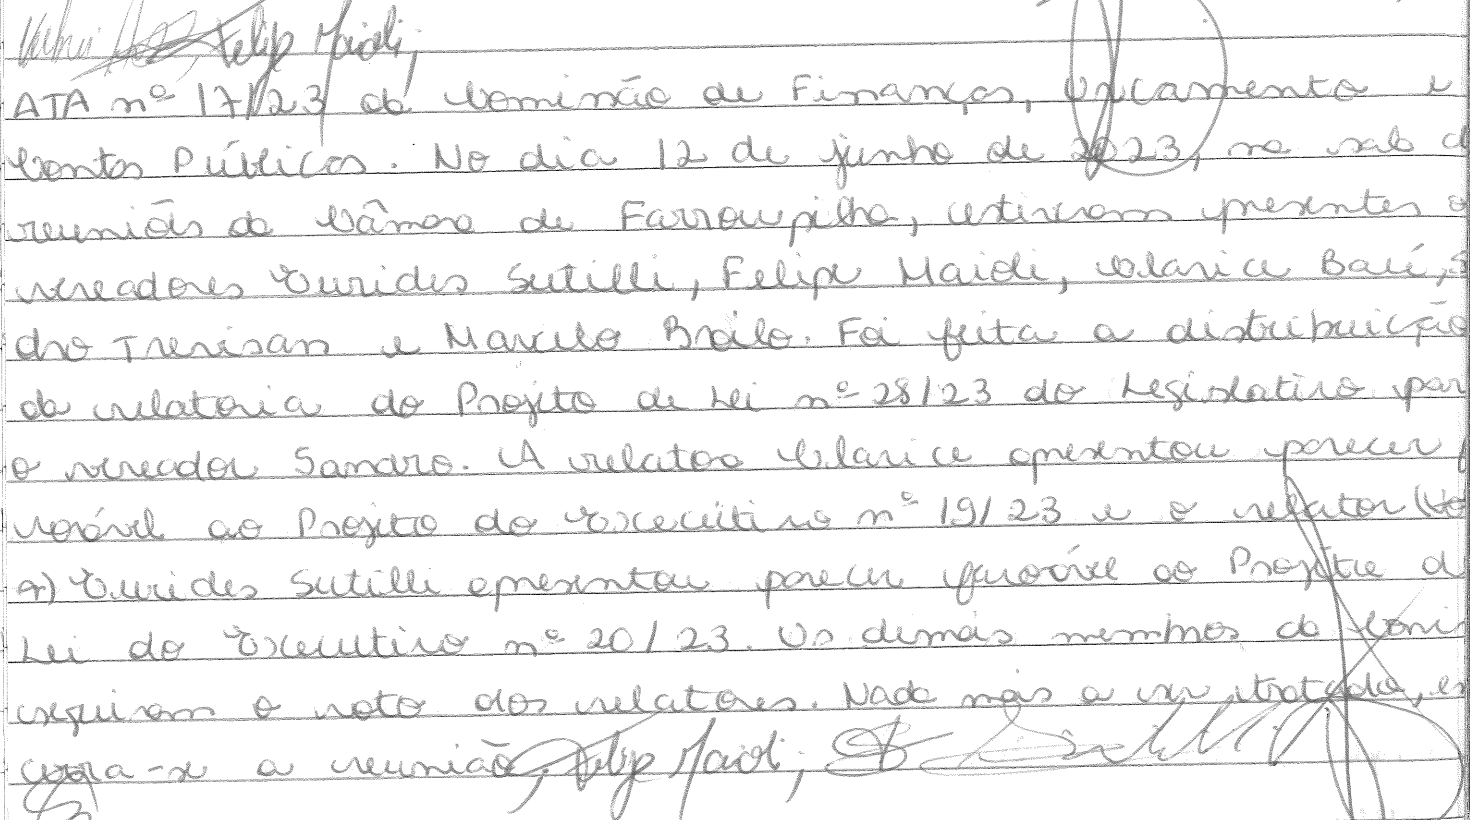 Felip Maioli,
ATA nº 17/23 da Comissão de Finanças, Orçamento e
Contas Públicas. No dia 12 de junho de 2023, na sala d
reuniões da Câmara de Farroupilha, estiveram presentes o
vereadores Eurides Sutilli, Felipe Maioli, Clarice Baú, S
dro Trevisan e Marcelo Broilo. Foi feita a distribuição
da relatoria do Projeto de Lei nº 28/23 do Legislativo par
o vereador Sandro. A relatora Clarice apresentou parecer f
vorável ao Projeto do Executivo nº 19/23 e o relator
Eurides Sutilli apresentou parecer favorável ao Projeto d
Lei do Executivo nº 20/23. Os demais membros da Comis
seguiram o voto dos relatores. Nada mais a ser tratado, en
cerra-se a reunião, Felip Maioli,